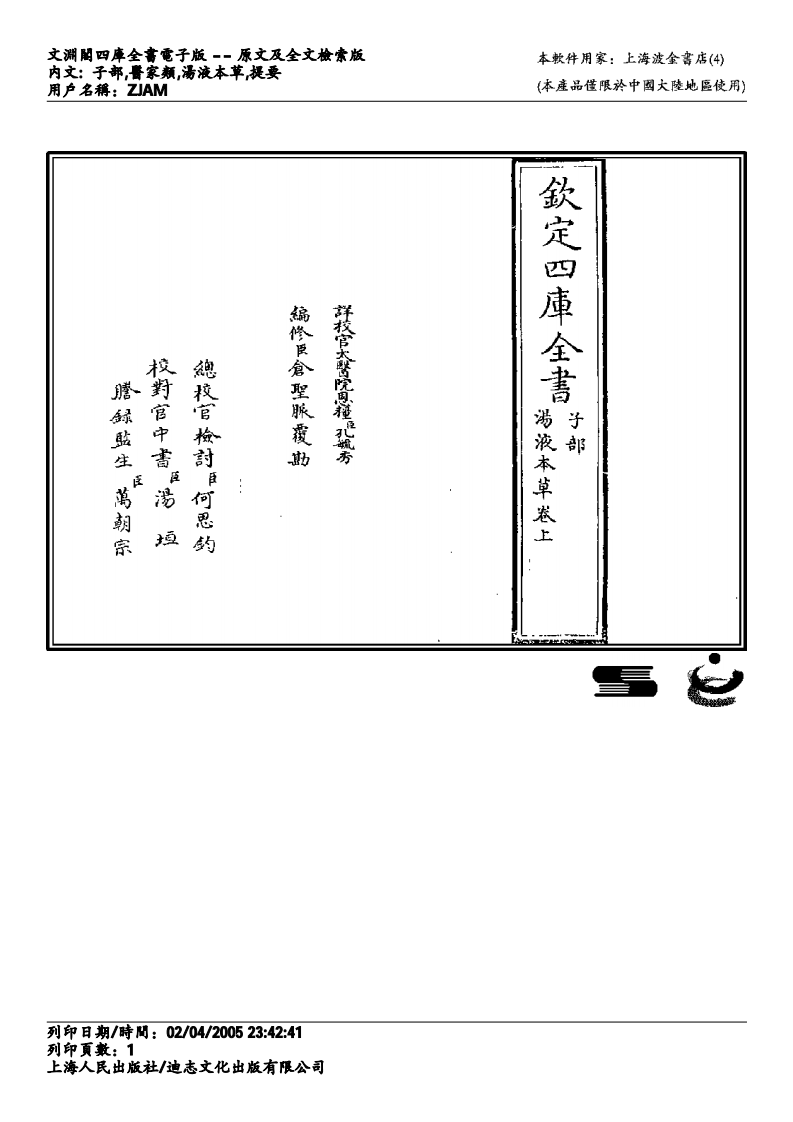 文淵閣四庫全書電子版 -- 原文及全文檢索版
內文: 子部,醫家類,湯液本草,提要
用戶名稱: ZJAM
本軟件用家: 上海波金書店(4)
(本產品僅限於中國大陸地區使用)
欽定四庫全書
子部
湯液本草卷上
詳校官太醫院恩糧臣孔毓秀
編修臣倉聖脈覆勘
總校官檢討臣何思鈞
校對官中書臣湯垣
謄錄監生臣萬朝宗
列印日期/時間: 02/04/2005 23:42:41
列印頁數: 1
上海人民出版社/迪志文化出版有限公司